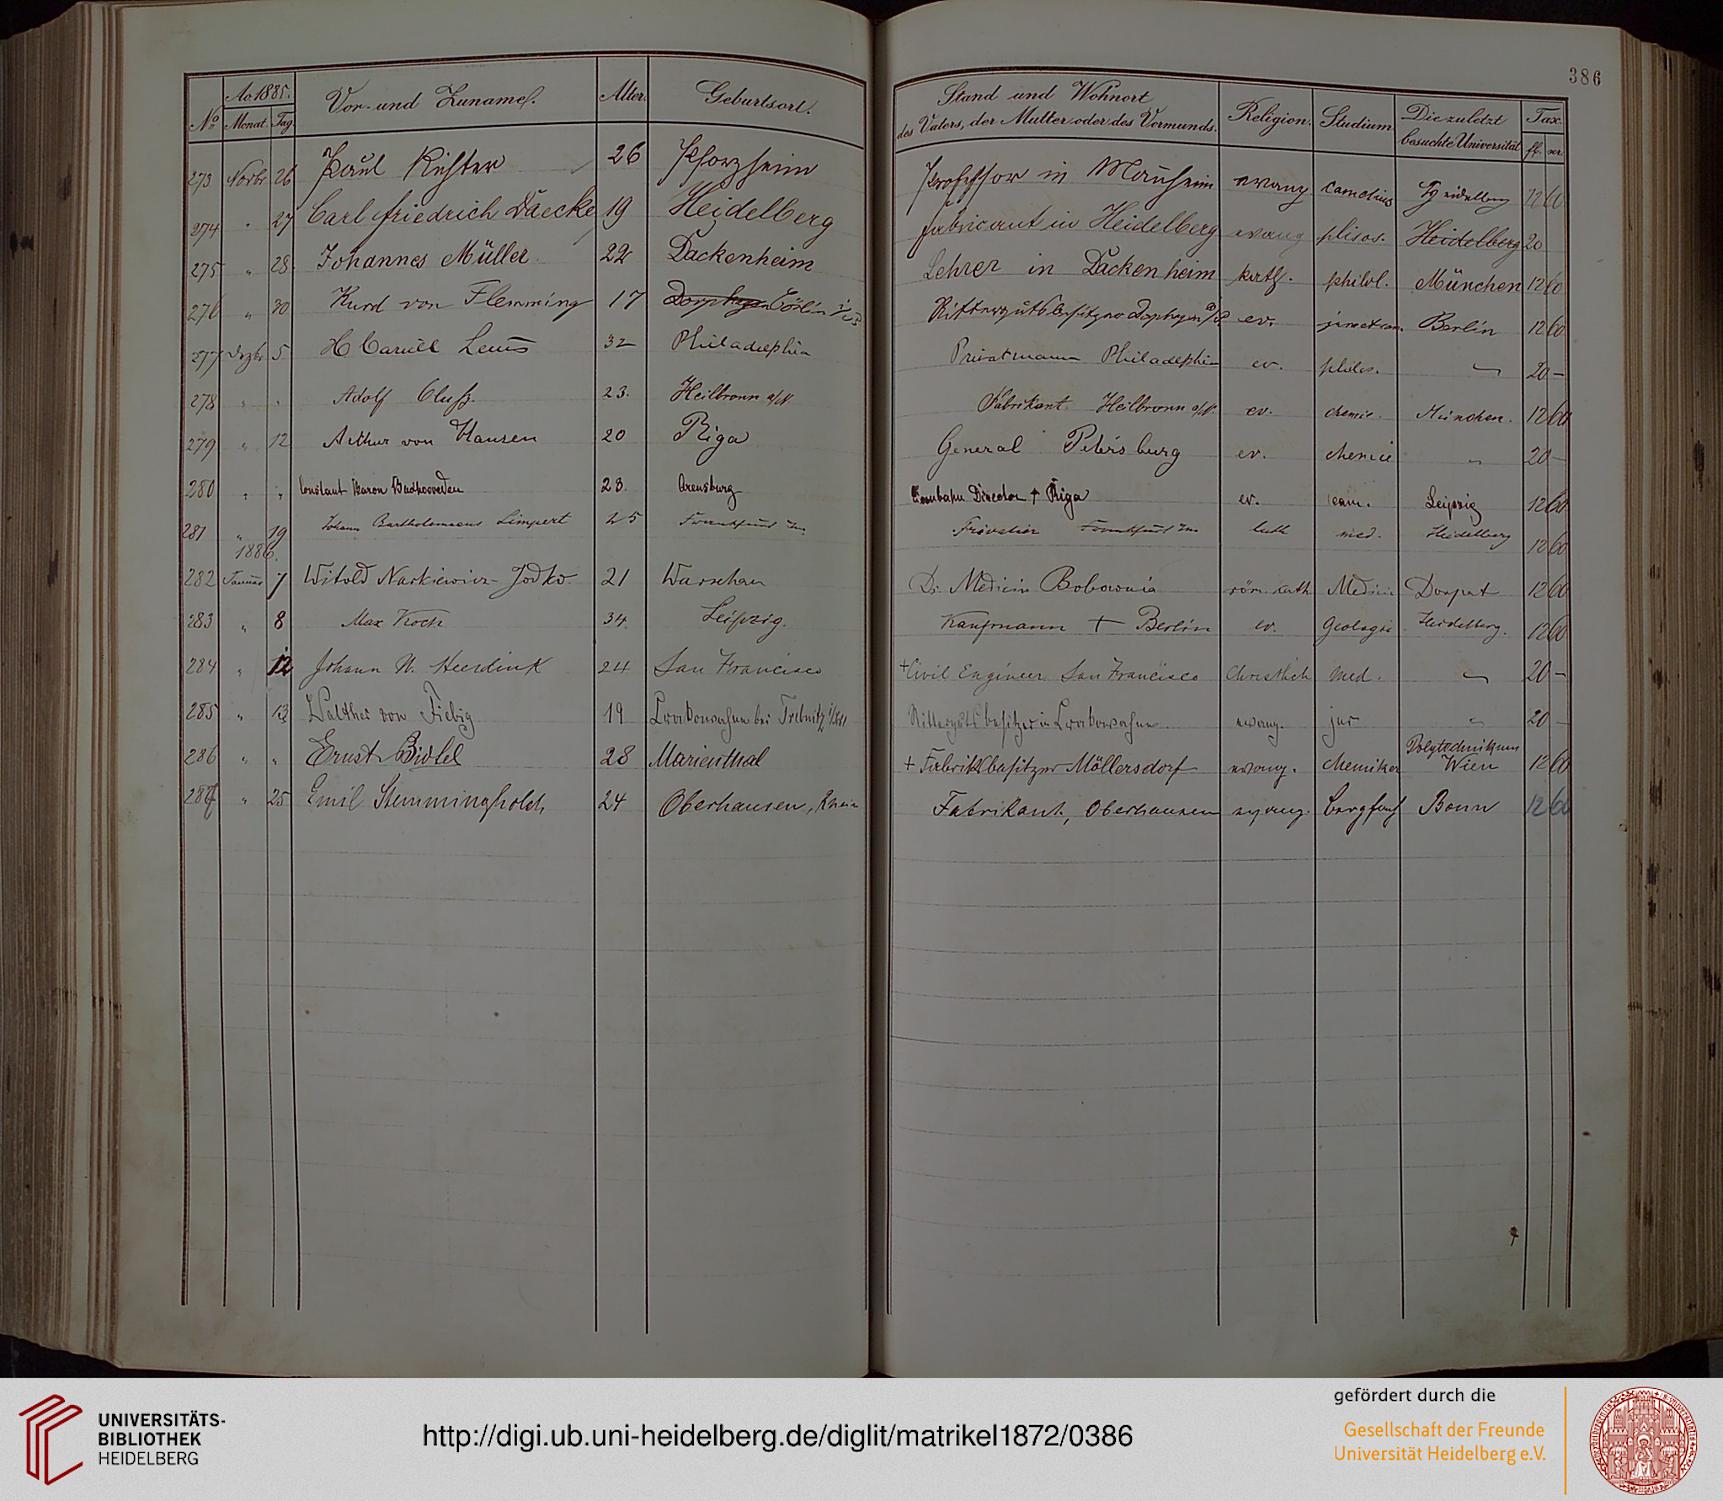 386
Ao 1885.
No Monat. Tag. Vor- und Zuname. Alter. Geburtsort. Stand und Wohnort des Vaters, der Mutter oder des Vormunds. Religion. Studium. Die zuletzt besuchte Universität Tax. fl.
273 Novbr 26 Paul Richter 26 Pforzheim Professor in Manheim evang Heidelberg 12 60
274 " 27 Carl Friedrich Daecke 19 Heidelberg Fabricant in Heidelberg evang Heidelberg 20
275 " 28 Johannes Müller 22 Dackenheim Lehrer in Dackenheim kath. philol. München 12 60
276 " 30 Kurd von Flemming 17 Rittergutsbesitzer ev. Berlin 12 60
277 Dezbr 5 32 Philadelphia Privatmann Philadelphia ev. philos. — 20 —
278 " " Adolf Cluß. 23. Heilbronn a/N Fabrikant Heilbronn a/N. ev. chemie. München. 12 60
279 " 12 Arthur von Hansen 20 Riga General Petersburg ev. chemie " 20 —
280 " " Constant Baron Buxhoevden 23 Arensburg Director † Riga ev. cam. Leipzig 12 60
281 " 19 Johann Bartholomaeus Limpert 25 Frankfurt a/m. Privatier Frankfurt a/m luth med. Heidelberg 12 60
1886.
282 Januar 7 Witold Narkiewicz-Jodko 21 Warschau Dr. Medicin Bobownia röm. kath. Medicin Dorpat 12 60
283 " 8 Max Koch 34. Leipzig. Kaufmann † Berlin ev. Geologie Heidelberg. 12 60
284 " 12 Johann W. Heerdink 24 San Francisco † Civil Engineer San Francisco Christlich Med. — 20 —
285 " 13 Walther von Fiebig 19 Rittergutsbesitzer in evang. jur " 20 —
286 " " Ernst 28 Marienthal † Fabriksbesitzer Möllersdorf evang. chemiker Polytechnikum Wien 12 60
287 " 25 Emil 24 Oberhausen, Rhein Fabrikant, Oberhausen evang. Bergfach Bonn 12 60
UNIVERSITÄTS-
BIBLIOTHEK
HEIDELBERG
http://digi.ub.uni-heidelberg.de/diglit/matrikel1872/0386
gefördert durch die
Gesellschaft der Freunde
Universität Heidelberg e.V.